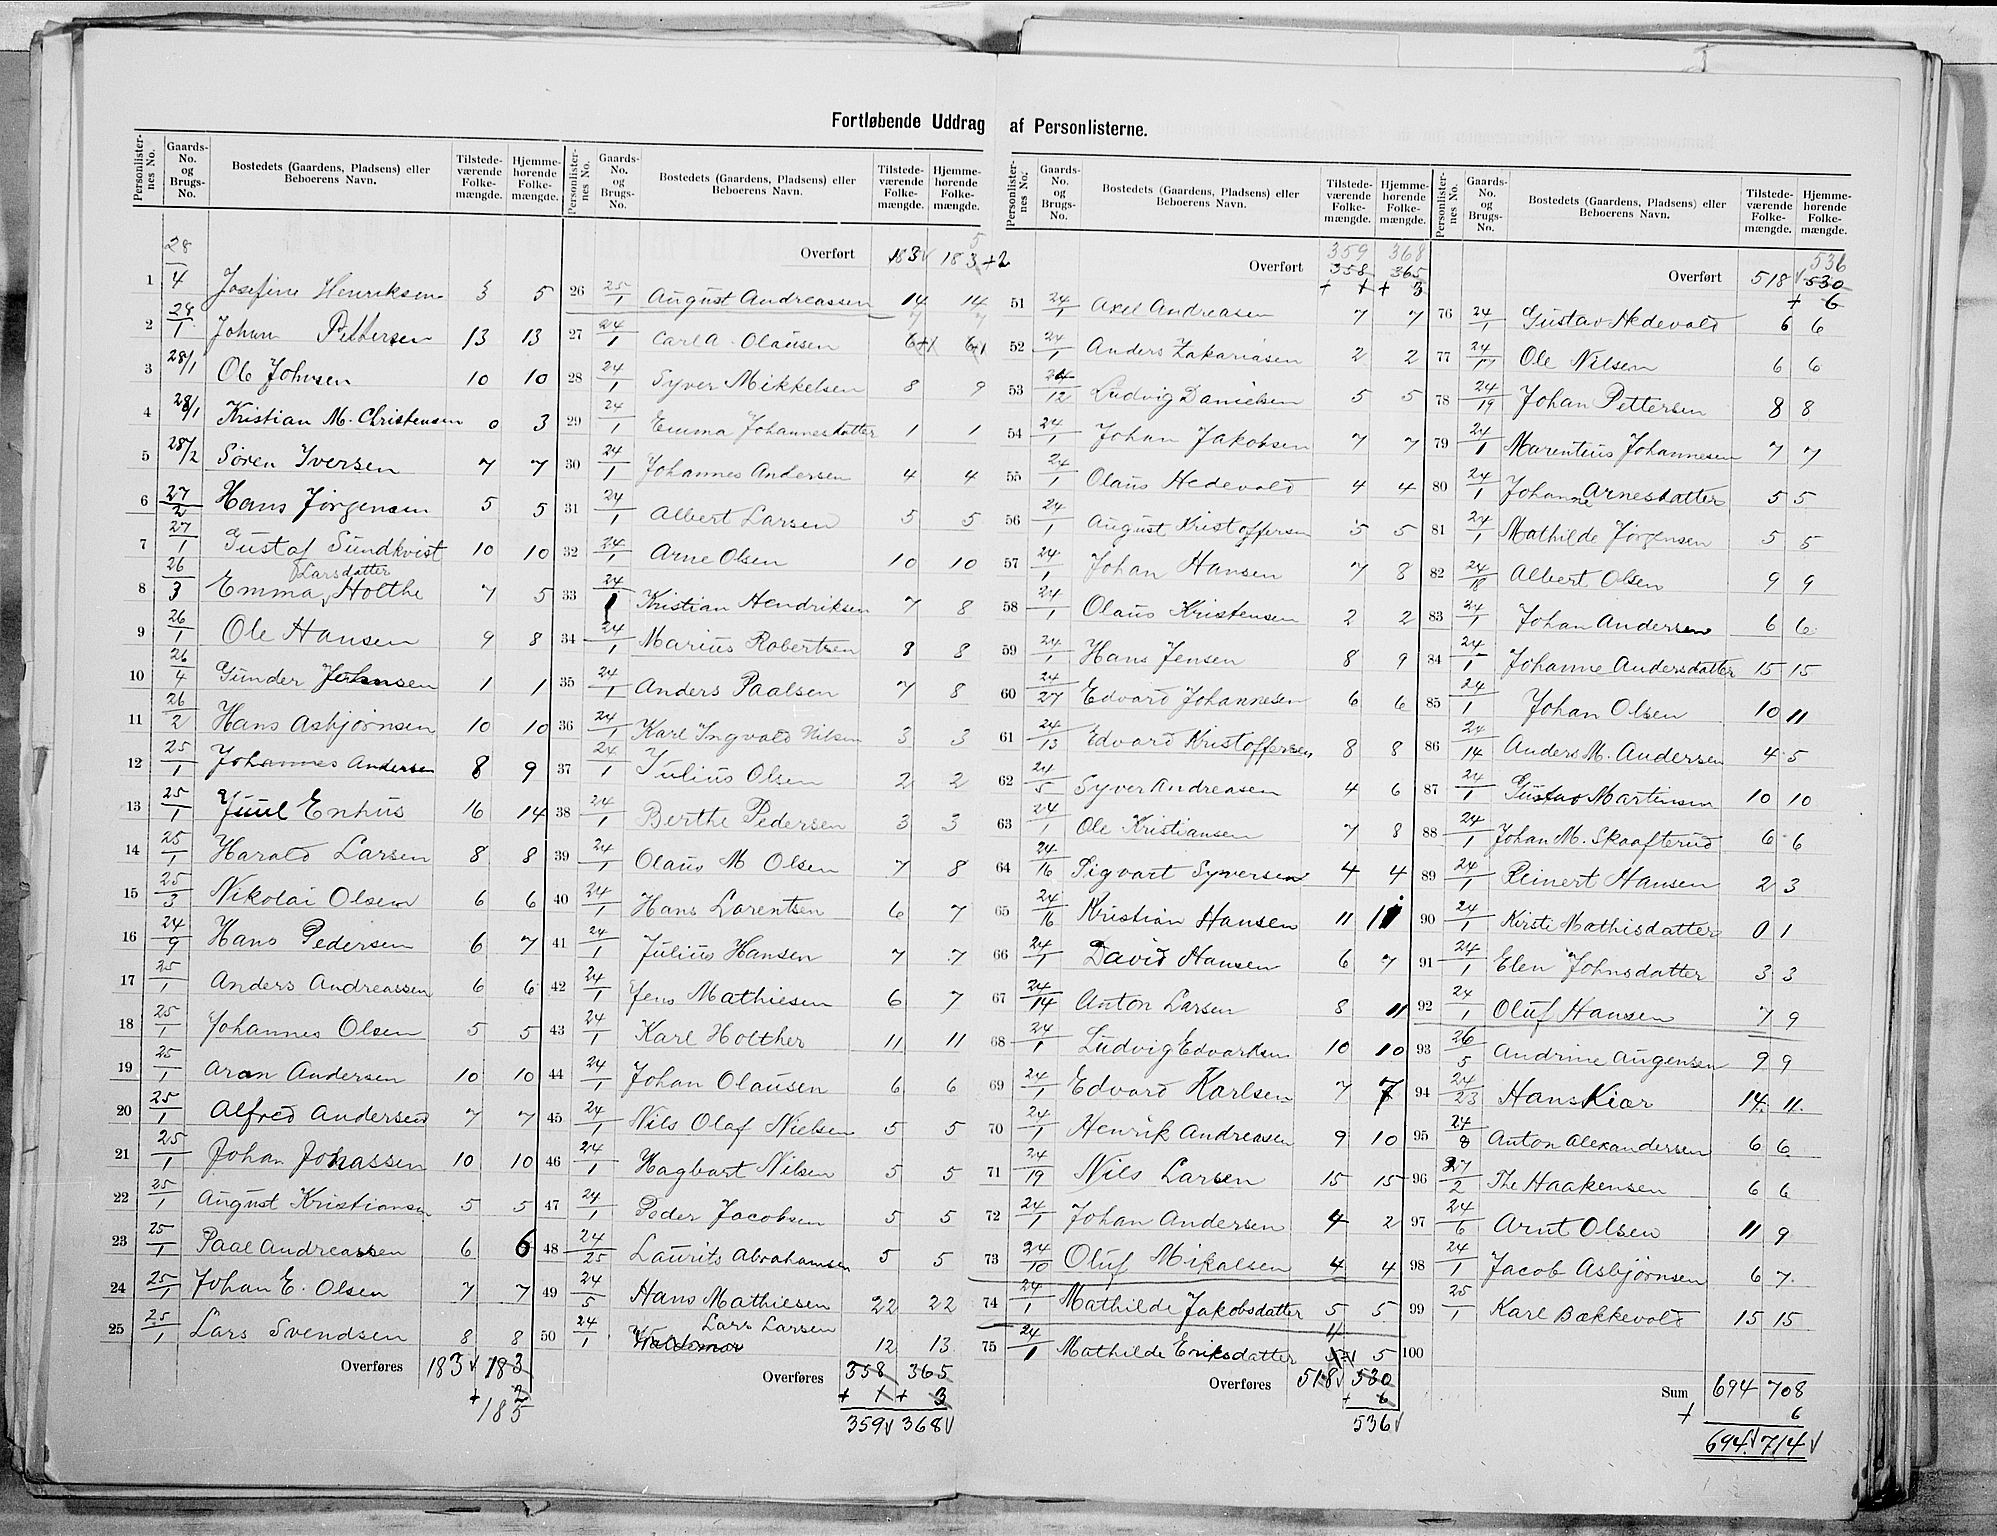 Fortløbende Uddrag af Personlisterne.
Personlister-nes No. | Gaards-No. og Brugs-No. | Bostedets (Gaardens, Pladsens) eller Beboerens Navn. | Tilstede-værende Folke-mængde. | Hjemme-hørende Folke-mængde.
1 28/4 Josefine Henriksen 3 5
2 28/1 Johan Pettersen 13 13
3 28/1 Ole Johnsen 10 10
4 28/1 Kristian M. Christensen 0 3
5 28/2 Sören Iversen 7 7
6 27/2 Hans Jørgensen 5 5
7 27/1 Gustaf Sundkvist 10 10
8 26/3 Emma Larsdatter Holthe 7 5
9 26/1 Ole Hansen 9 8
10 26/4 Gunder Johnsen 1 1
11 26/2 Hans Asbjørnsen 10 10
12 25/1 Johannes Andersen 8 9
13 25/1 Juul Enhus 16 14
14 25/1 Harald Larsen 8 8
15 25/3 Nikolai Olsen 6 6
16 24/9 Hans Pedersen 6 7
17 25/1 Anders Andreassen 6 6
18 25/1 Johannes Olsen 5 5
19 25/1 Aron Andersen 10 10
20 25/1 Alfred Andersen 7 7
21 25/1 Johan Jonassen 10 10
22 25/1 August Kristiansen 5 5
23 25/1 Paal Andreassen 6 6
24 25/1 Johan E. Olsen 7 7
25 25/1 Lars Svendsen 8 8
Overføres 183 183
+ 2
185
Personlister-nes No. | Gaards-No. og Brugs-No. | Bostedets (Gaardens, Pladsens) eller Beboerens Navn. | Tilstede-værende Folke-mængde. | Hjemme-hørende Folke-mængde.
Overført 183 183 +2
5
26 25/1 August Andreassen 14 14
7 7
27 24/1 Carl A. Olausen 6+1 6+1
28 24/1 Syver Mikkelsen 8 9
29 24/1 Emma Johannesdatter 1 1
30 24/1 Johannes Andersen 4 4
31 24/1 Albert Larsen 5 5
32 24/1 Arne Olsen 10 10
33 24/1 Kristian Hendriksen 7 8
34 24/1 Marius Robertsen 8 8
35 24/1 Anders Paalsen 7 8
36 24/1 Karl Ingvald Nilsen 3 3
37 24/1 Julius Olsen 2 2
38 24/1 Berthe Pedersen 3 3
39 24/1 Olaus M Olsen 7 8
40 24/1 Hans Larentsen 6 7
41 24/1 Julius Hansen 7 7
42 24/1 Jens Mathiesen 6 7
43 24/1 Karl Holther 11 11
44 24/1 Johan Olausen 6 6
45 24/1 Nils Olaf Nielsen 5 5
46 24/1 Hagbart Nilsen 5 5
47 24/1 Peder Jacobsen 5 5
48 24/25 Laurits Abrahamsen 5 5
49 24/5 Hans Mathiesen 22 22
50 24/1 Lars Larsen 12 13
Overføres 358 365
+ 1 + 3
359 368
Personlister-nes No. | Gaards-No. og Brugs-No. | Bostedets (Gaardens, Pladsens) eller Beboerens Navn. | Tilstede-værende Folke-mængde. | Hjemme-hørende Folke-mængde.
359 368
Overført 358 365
+ 1 + 3
51 24/1 Axel Andreasen 7 7
52 24/1 Anders Zakariasen 2 2
53 24/12 Ludvig Danielsen 5 5
54 24/1 Johan Jakobsen 7 7
55 24/1 Olaus Hedevald 4 4
56 24/1 August Kristoffersen 5 5
57 24/1 Johan Hansen 7 8
58 24/1 Olaus Kristensen 2 2
59 24/1 Hans Jensen 8 9
60 24/27 Edvard Johannesen 6 6
61 24/13 Edvard Kristoffersen 8 8
62 24/5 Syver Andreasen 4 6
63 24/1 Ole Kristiansen 7 8
64 24/16 Sigvart Syversen 4 4
65 24/16 Kristian Hansen 11 11
66 24/1 David Hansen 6 7
67 24/14 Anton Larsen 8 11
68 24/1 Ludvig Edvardsen 10 10
69 24/1 Edvard Karlsen 7 7
70 24/1 Henrik Andreasen 9 10
71 24/19 Nils Larsen 15 15
72 24/1 Johan Andersen 4 2
73 24/10 Oluf Mikalsen 4 4
74 24/1 Mathilde Jakobsdatter 5 5
4
75 24/1 Mathilde Eriksdatter 5-1 5
Overføres 518 530
+ 6
536
Personlister-nes No. | Gaards-No. og Brugs-No. | Bostedets (Gaardens, Pladsens) eller Beboerens Navn. | Tilstede-værende Folke-mængde. | Hjemme-hørende Folke-mængde.
536
Overført 518 530
+ 6
76 24/1 Gustav Hedevald 6 6
77 24/17 Ole Nilsen 6 6
78 24/19 Johan Pettersen 8 8
79 24/1 Marentius Johannesen 7 7
80 24/1 Johanne Arnesdatter 5 5
81 24/1 Mathilde Jørgensen 5 5
82 24/18 Albert Olsen 9 9
83 24/1 Johan Andersen 6 6
84 24/1 Johanne Andersdatter 15 15
85 24/1 Johan Olsen 10 11
86 24/14 Anders M. Andersen 4 5
87 24/1 Gustav Martinsen 10 10
88 24/1 Johan M. Skaafterud 6 6
89 24/1 Reinert Hansen 2 3
90 24/1 Kirste Mathisdatter 0 1
91 24/1 Elen Johnsdatter 3 3
92 24/1 Oluf Hansen 7 9
93 26/5 Andrine Augensen 9 9
94 24/23 Hans Kiær 14 11
95 24/8 Anton Alexandersen 6 6
96 27/2 The Haakensen 6 6
97 24/6 Arnt Olsen 11 9
98 24/1 Jacob Asbjørnsen 6 7
99 25/1 Karl Bækkevold 15 15
100
Sum 694 708
+ 6
694 714